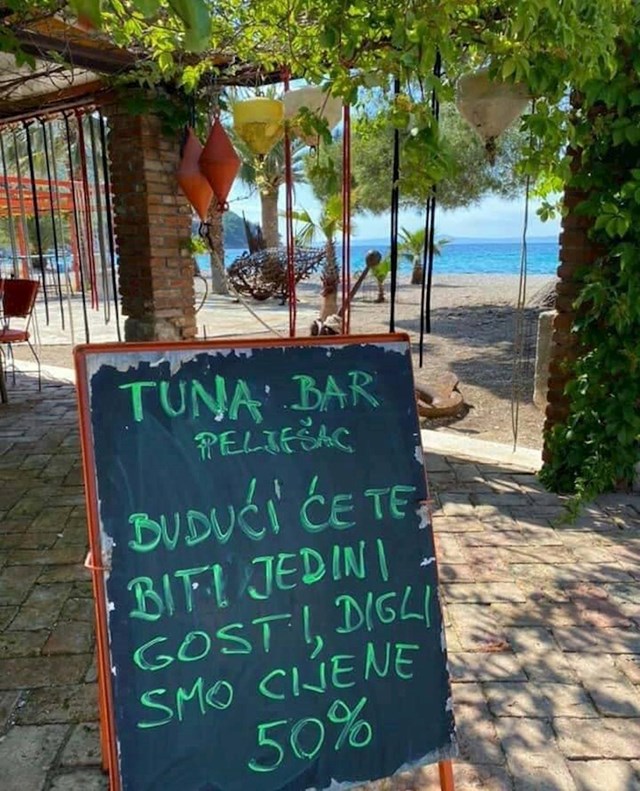 TUNA BAR
PELJEŠAC
BUDUĆI ĆE TE
BITI JEDINI
GOSTI, DIGLI
SMO CIJENE
50%